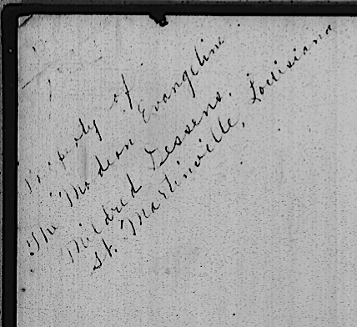 Property of
The Modern Evangeline.
Mildred Fessens.
St. Martinville, Louisiana